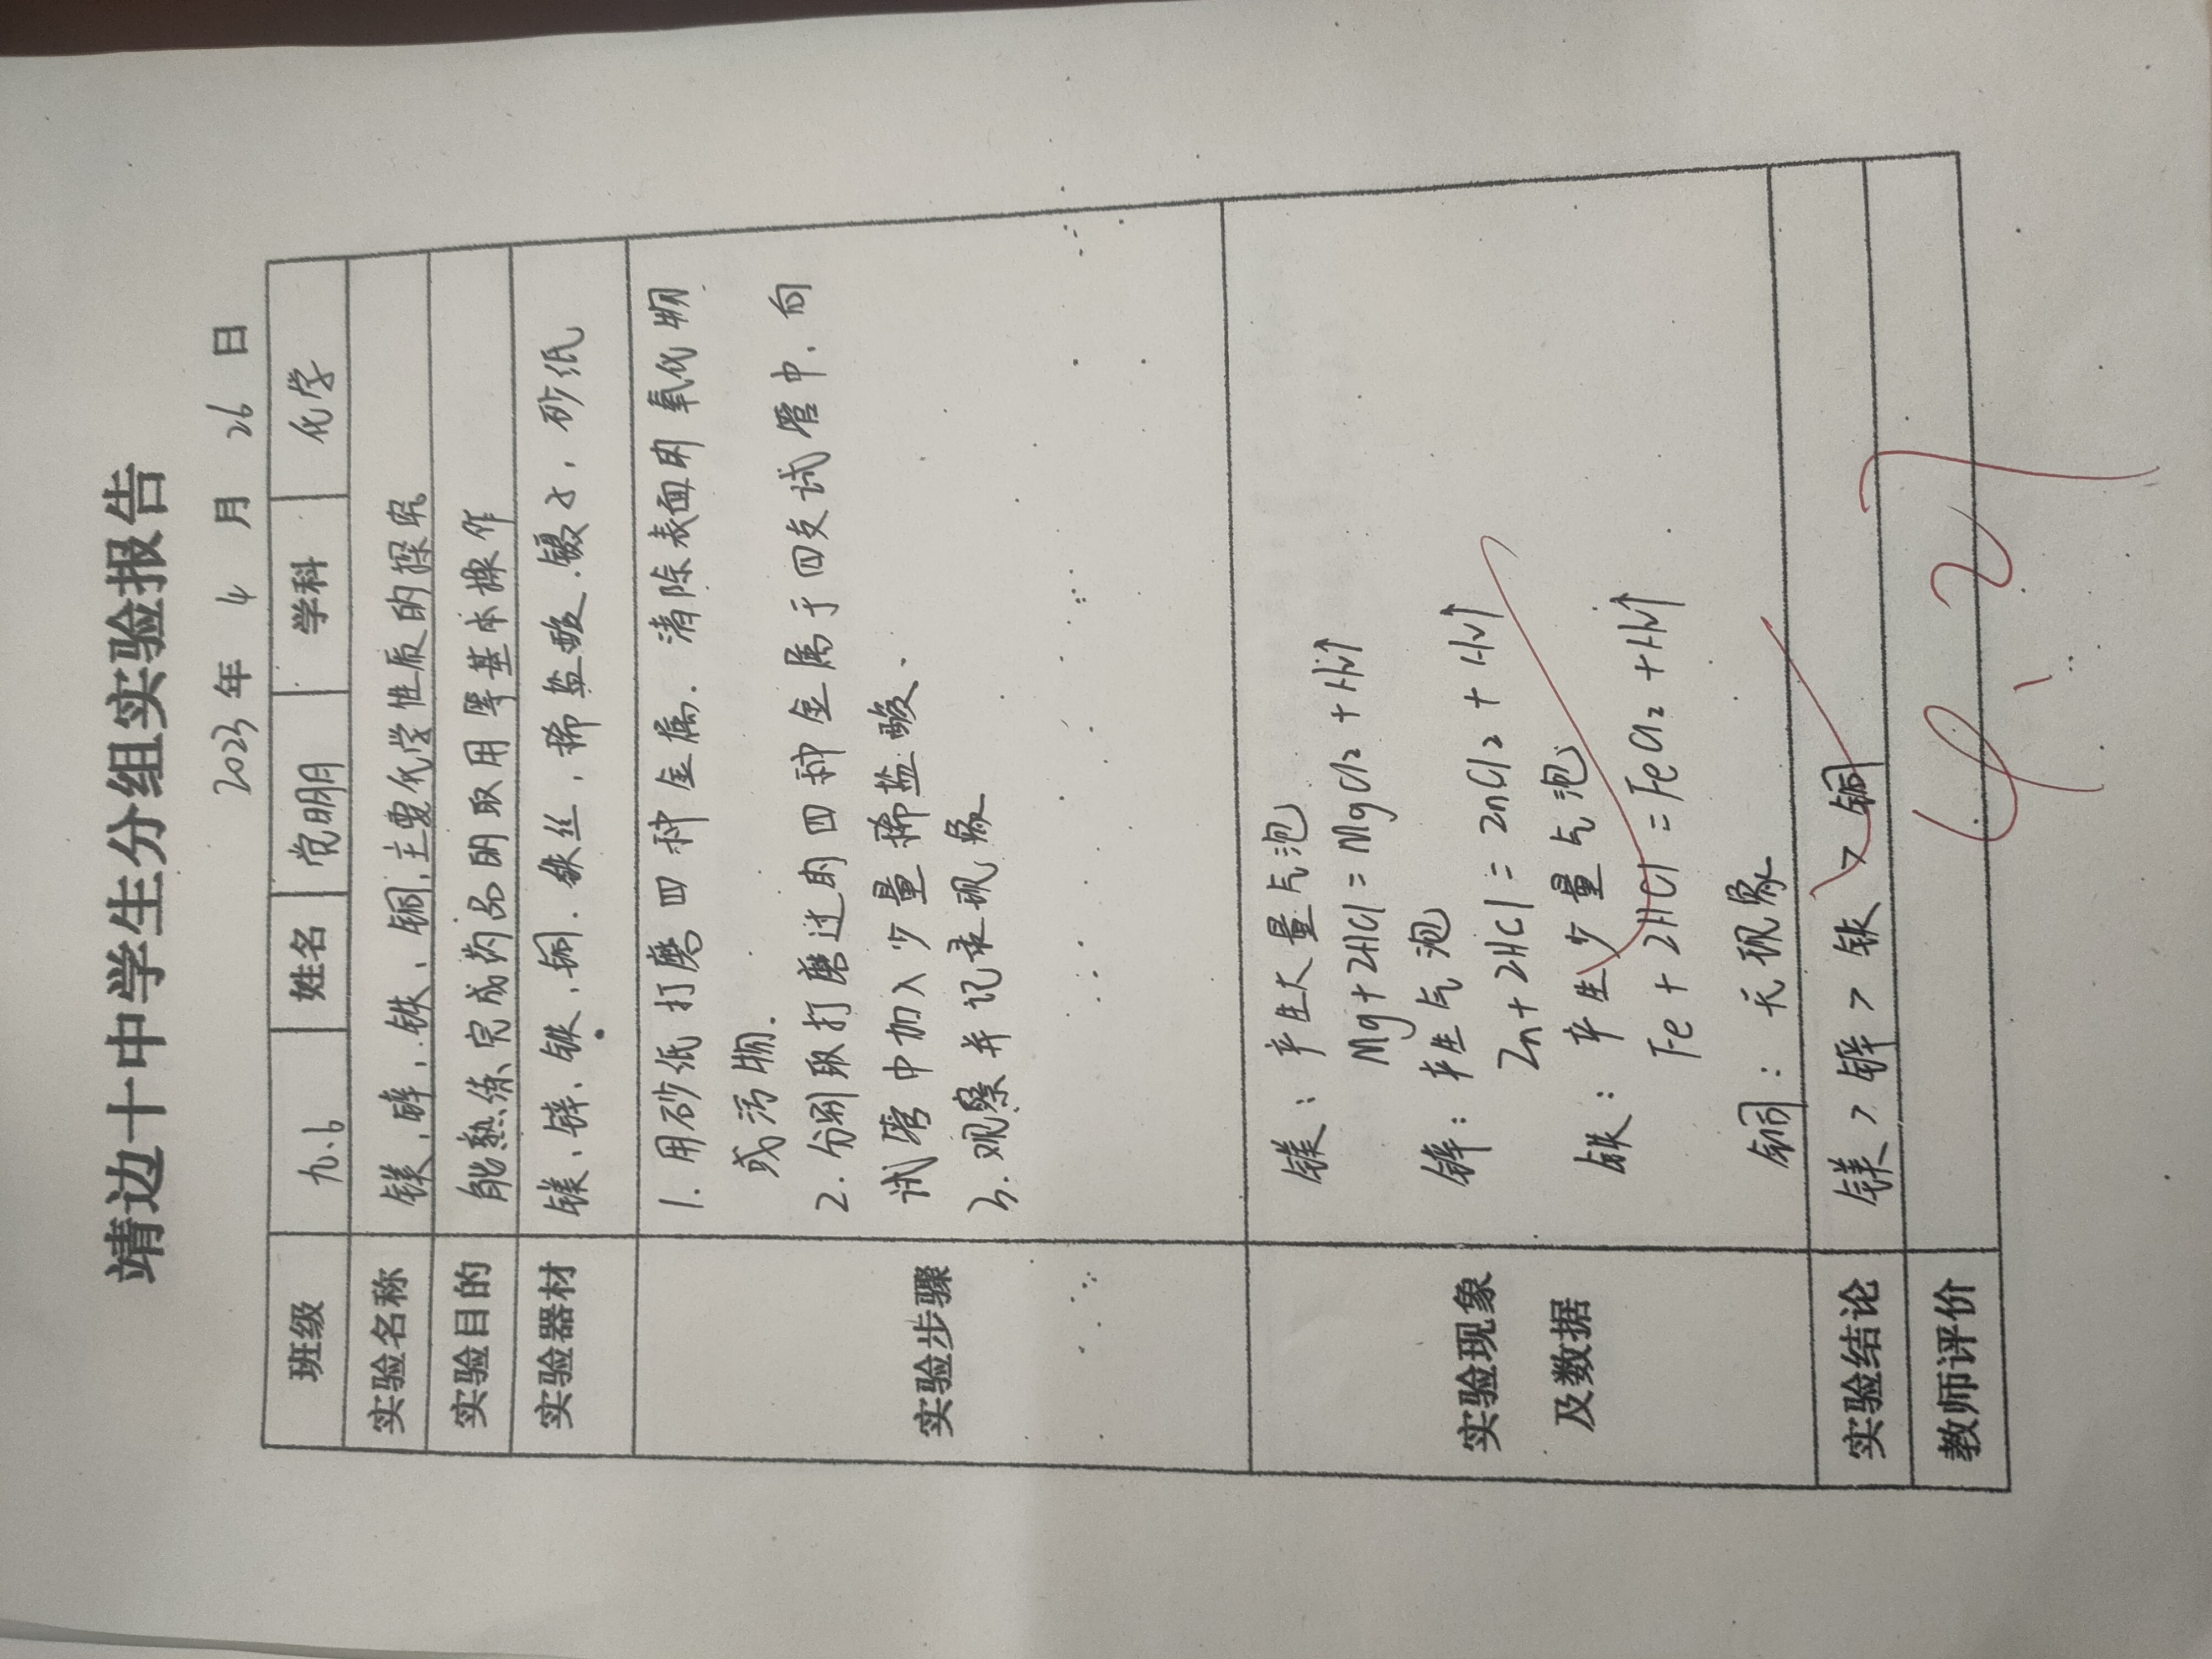 靖边十中学生分组实验报告
2023年 4 月 26 日
班级 九.6 姓名 党明明 学科 化学
实验名称 镁、锌、铁、铜主要化学性质的探究
实验目的 能熟练完成药品的取用等基本操作
实验器材 镁、锌、铁、铜、铁丝、稀盐酸、镊子、砂纸
实验步骤
1. 用砂纸打磨四种金属.清除表面的氧化物
或污物.
2. 分别取打磨过的四种金属于四支试管中.向
试管中加入少量稀盐酸、
3. 观察并记录现象
实验现象
及数据
镁：产生大量气泡
Mg+2HCl=MgCl₂+H₂↑
锌：产生气泡
Zn+2HCl=ZnCl₂+H₂↑
铁：产生少量气泡
Fe+2HCl=FeCl₂+H₂↑
铜：无现象
实验结论 镁>锌>铁>铜
教师评价